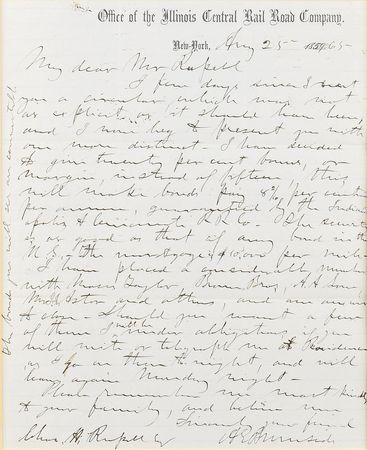 Office of the Illinois Central Rail Road Company.
New-York, Aug 25 1865
My dear Mr Russell
A few days since I sent
you a circular which was not
as explicit as it should have been,
and I now beg to present you with
one more distinct I have decided
to give twenty per cent bonus, or
margin instead of fifteen, this
will make bonds pay 8 % per cent
per annum, guaranteed by the Indian
apolis & Cincinnati R.R. Co. The security
is as good as that of any bond in the
U.S. the mortgage $10,000 per mile
I have placed a considerable number
with Moses Taylor, Brown Bros, A A Low
Wm B Astor and others, and am anxious
to close. Should you want a few
of them I will be under obligations if you
will write or telegraph me at Providence
as I go on there to night, and will
leave again Monday night
Please remember me most kindly
to your family, and believe me
Sincerely your friend
A E Burnside
Chas H. Russell
The bonds you will see are convertible